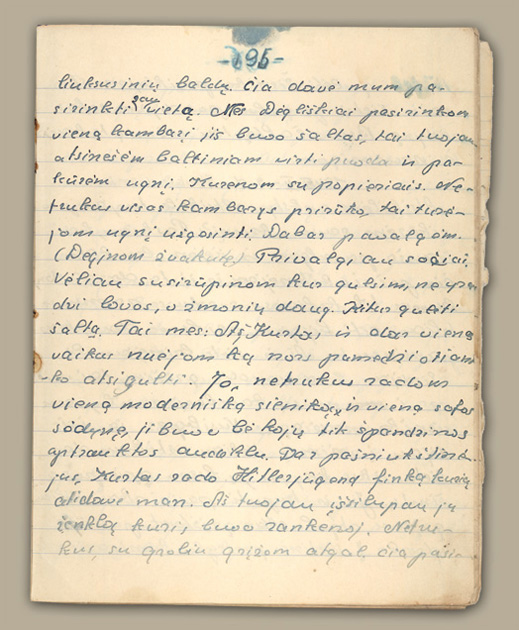 -195-
liuksusinių baldų. Čia davė mum pa-
sirinkti sau vietą. Mes Dėgliškiai pasirinkom
vieną kambarį jis buvo šaltas, tai tuojau
atsinešėm baltiniam virti puodą ir pa-
kūrėm ugnį. Kurenom su popieriais. Ne-
trukus visas kambarys prirūko, tai turė-
jom ugnį užgesinti. Dabar pavalgėm.
(Deginom žvakutę) Privalgėm sočiai.
Vėliau susirūpinom kur gulsim, ne yra
dvi lovos, o žmonių daug. Kitur gulėti
šalta. Tai mes: Aš, Kurtas, ir dar vienas
vaikas nuėjom ką nors pamedžiotiam
ko atsigulti. Jo, netrukus radom
vieną modernišką sieniką, ir vieną sofos
sėdynę, ji buvo be kojų tik spandzinos
aptrauktos audeklu. Dar pašniukštinė-
jus, Kurtas rado Hitlerjūgend finką kurią
atidavė man. Aš tuojau išsilupau jų
ženklą kuris buvo rankenoj. Netru-
kus, su grobiu grįžom atgal. Čia